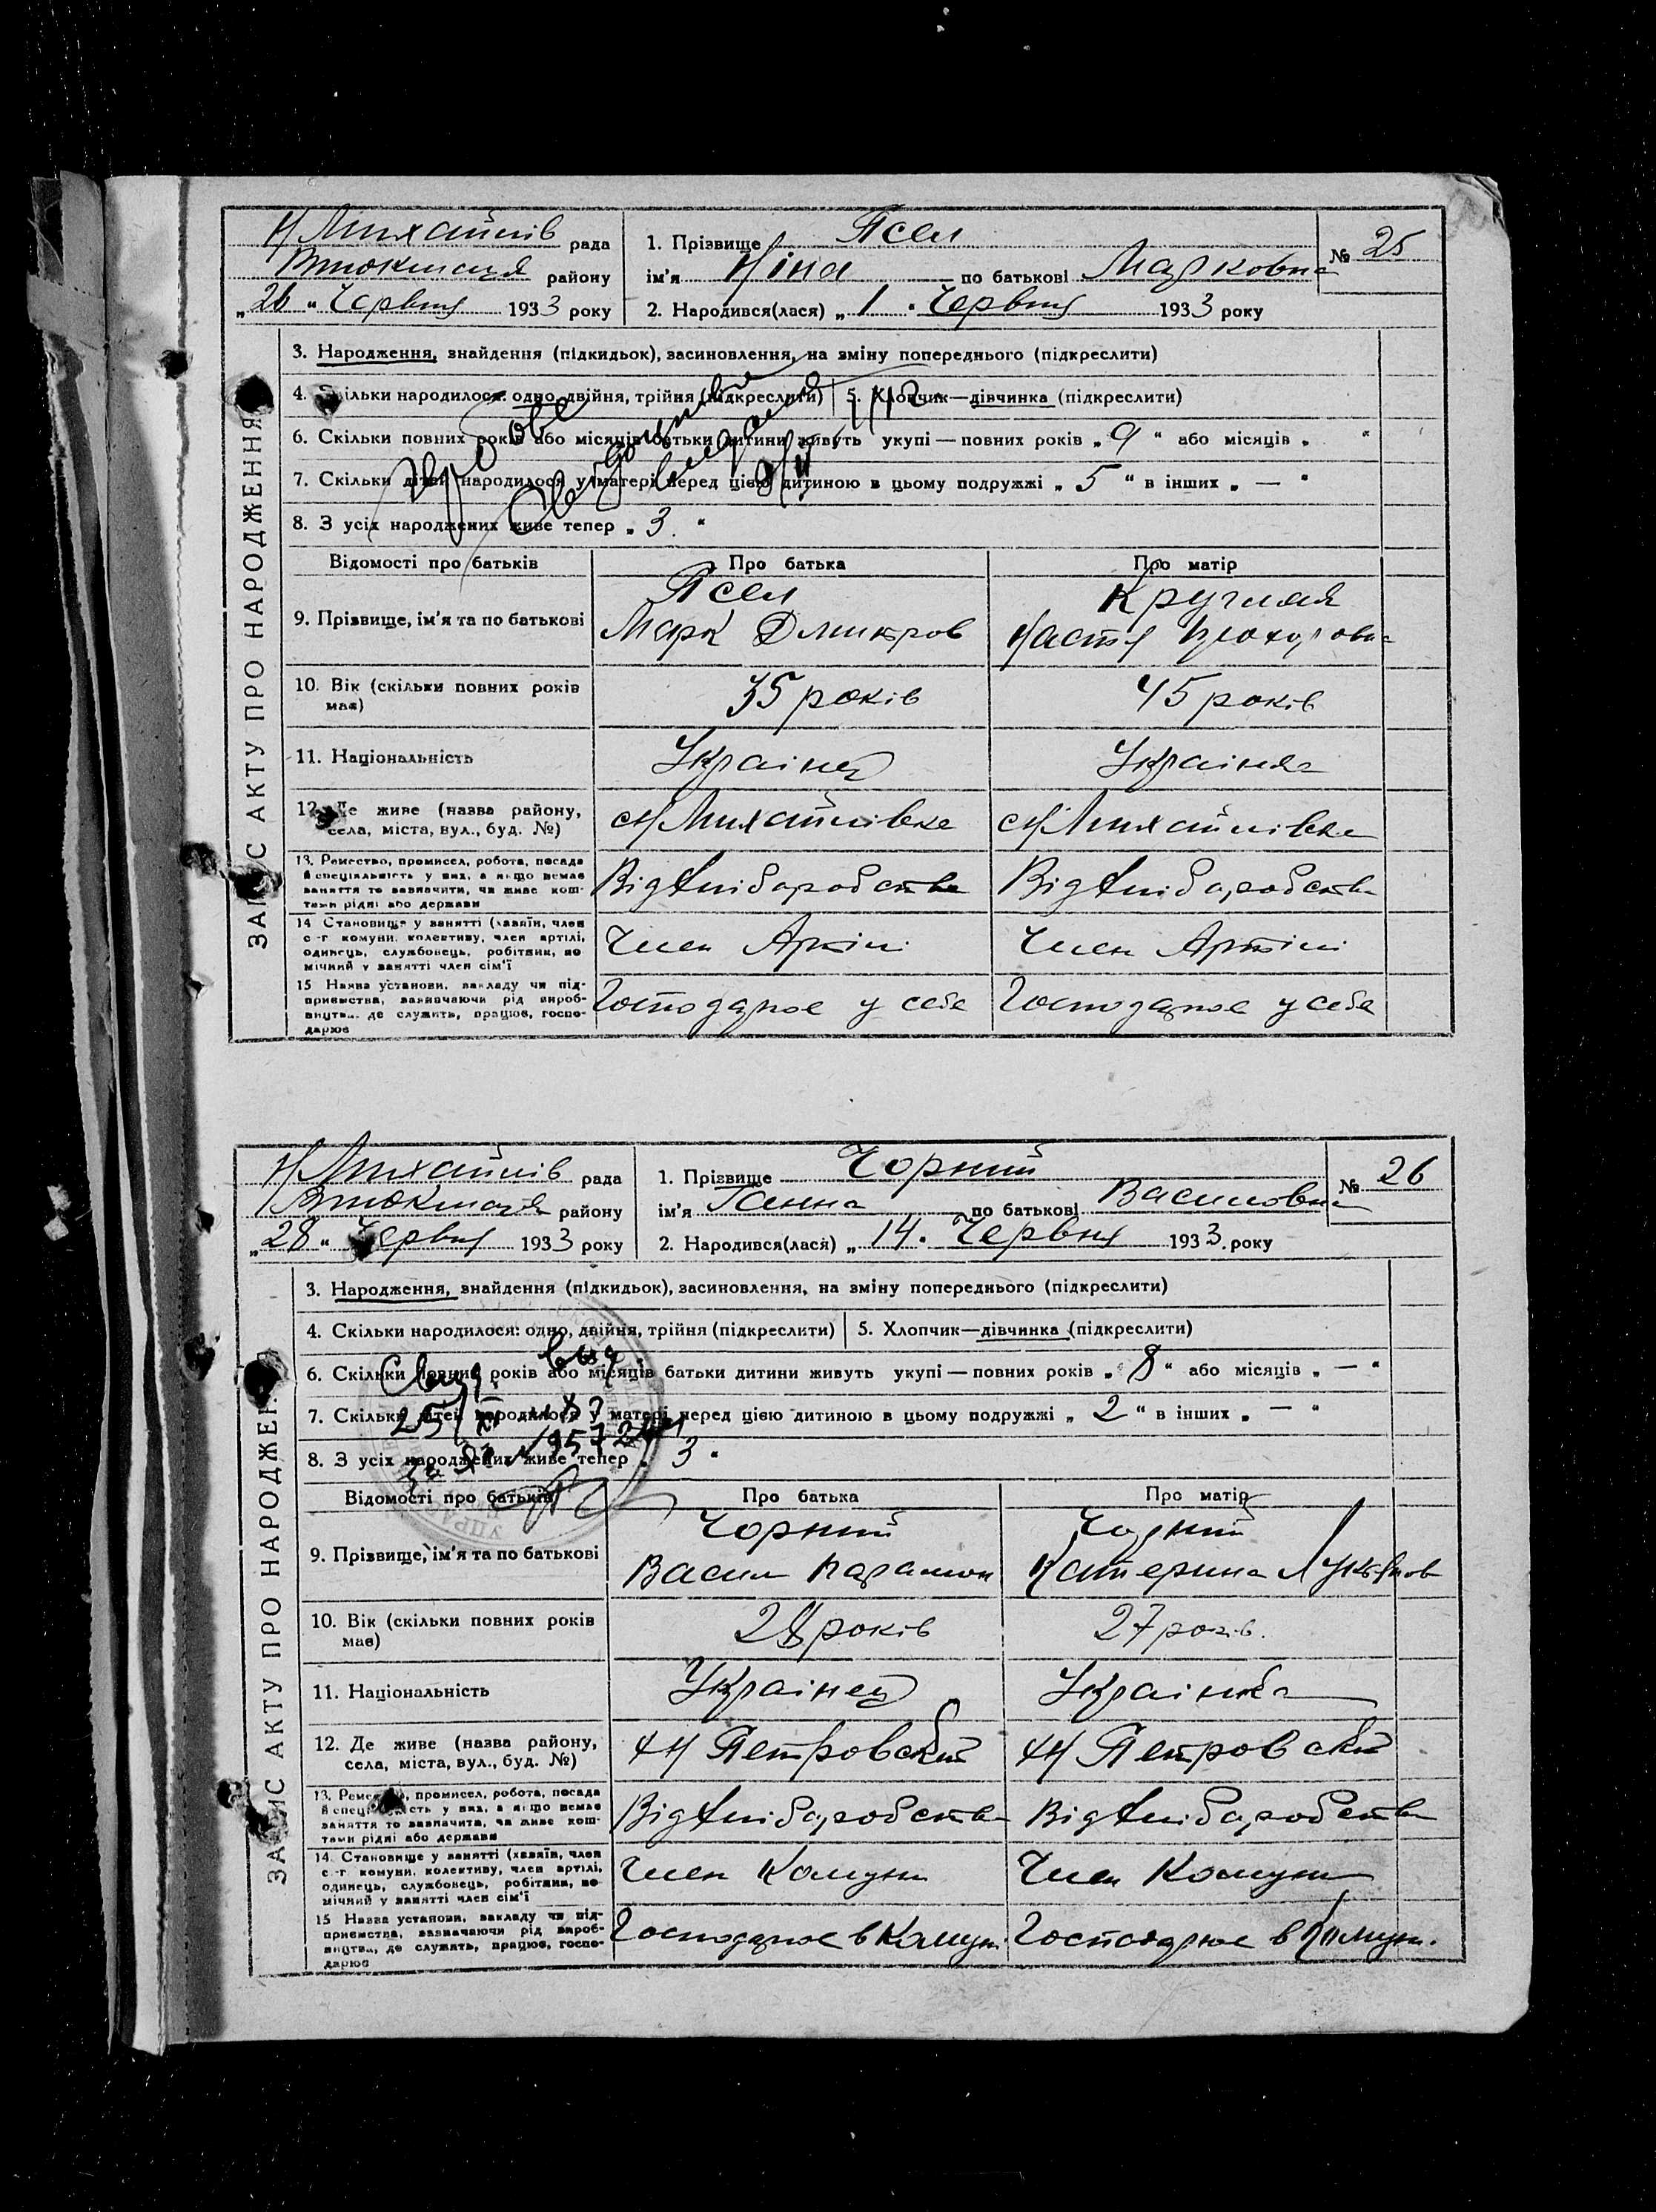 Н Михайлів рада
району
„26“ Червня 1933 року
1. Прізвище Псел
№ 25
ім'я Ніна по батькові Марковна
2. Народився(лася) „1“ Червня 1933 року
ЗАПИС АКТУ ПРО НАРОДЖЕННЯ
3. Народження, знайдення (підкидьок), засиновлення, на зміну попереднього (підкреслити)
4. Скільки народилося: одно, двійня, трійня (підкреслити) 5. Хлопчик—дівчинка (підкреслити)
6. Скільки повних років або місяців батьки дитини живуть укупі — повних років „9“ або місяців „ “
7. Скільки дітей народилося у матері перед цією дитиною в цьому подружжі „5“ в інших „—“
8. З усіх народжених живе тепер „3“
Відомості про батьків Про батька Про матір
9. Прізвище, ім'я та по батькові
Псел
Марк Дмитров
Круглая
Настя Прохоровна
10. Вік (скільки повних років має)
35 років 45 років
11. Національність Українец Українка
12. Де живе (назва району,
села, міста, вул., буд. №)
сН Михайлівка сН Михайлівка
13. Ремество, промисел, робота, посада
й спеціяльність у них, а якщо немає
заняття то зазначити, чи живе кош-
тами рідні або держави
14 Становище у занятті (хазяїн, член
с.-г комуни, колективу, член артілі,
одинець, службовець, робітник, по
мічний у занятті член сім'ї
Член Артіли Член Артіли
15 Назва установи, закладу чи під-
приємства, зазначаючи рід вироб-
ництва, де служить, працює, госпо-
дарює
Господарює у себе Господарює у себе
Н Михайлів рада
району
„28“ Червня 1933 року
1. Прізвище Чорний
№ 26
ім'я Ганна по батькові Василовна
2. Народився(лася) „14. Червня 1933. року
ЗАПИС АКТУ ПРО НАРОДЖЕННЯ
3. Народження, знайдення (підкидьок), засиновлення, на зміну попереднього (підкреслити)
4. Скільки народилося: одно, двійня, трійня (підкреслити) 5. Хлопчик—дівчинка (підкреслити)
6. Скільки повних років або місяців батьки дитини живуть укупі — повних років „8“ або місяців „—“
7. Скільки дітей народилося у матері перед цією дитиною в цьому подружжі „2“ в інших „—“
8. З усіх народжених живе тепер „3“
Відомості про батьків Про батька Про матір
9. Прізвище, ім'я та по батькові
Чорний
Васил Парамон
Чорний
Катерина Лукьянов
10. Вік (скільки повних років
має)
28 років 27 років.
11. Національність Українец Українка
12. Де живе (назва району,
села, міста, вул., буд. №)
Петровский Петровский
13. Ремество, промисел, робота, посада
й спеціяльність у них, а якщо немає
заняття то зазначити, чи живе кош-
тами рідні або держави
14. Становище у занятті (хазяїн, член
с.-г комуни, колективу, член артілі,
одинець, службовець, робітник, по
мічний у занятті член сім'ї
Член Комуни Член Комуни
15 Назва установи, закладу чи під-
приємства, зазначаючи рід вироб-
ництва, де служить, працює, госпо-
дарює
Господарює в Комун. Господарює в Комун.